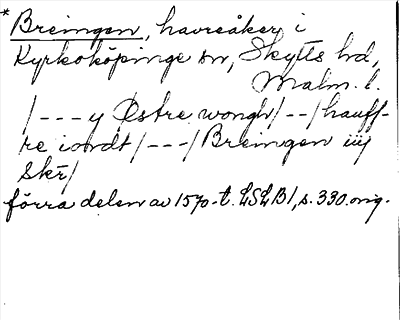 * Breingen, havreåker i
Kyrkoköpinge sn, Skytts hd,
Malm. l.
/---y Østre wongh/--/hauff-
re iordt/---/Breingen iiij
Skr/
förra delen av 1570-t. LSLB1, s. 330. orig.